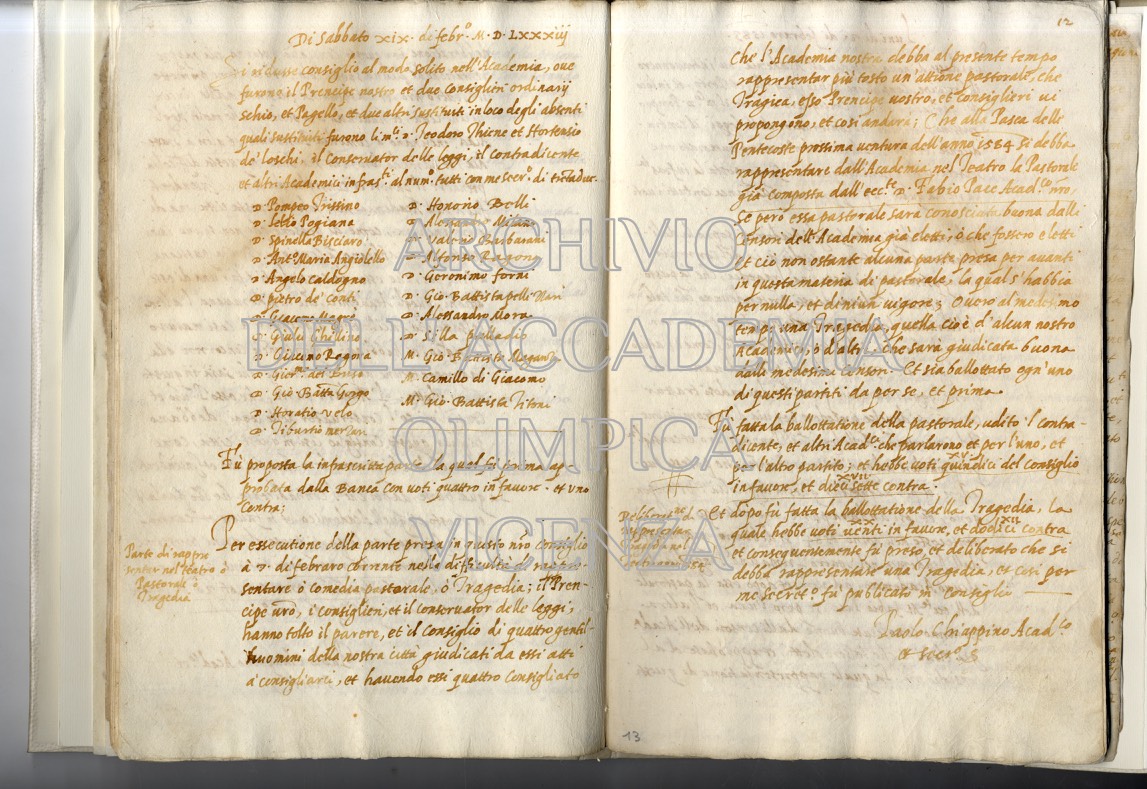 Di Sabbato xix. di febr.o M. D. LXXXiij
Si ridusse consiglio al modo solito nell'Academia, oue
furono il Prencipe nostro et due Consiglieri ordinarij
schio, et Pagello, et due altri sustituiti in loco degli absenti
quali sustituiti furono li m.ci D. Teodoro Thiene et Hortensio
de' loschi, il Conseruator delle leggi, il Contradicente
et altri Academici infras.ti al num.o tutti con me secr.o di
D. Pompeo Trissino
D. Lelio Pogiana
D. Spinella Bissaro
D. Ant.o Maria Angiolello
D. Angelo Caldogno
D. Pietro de' Conti
D. Giacomo Magrè
D. Giulio Chilino
D. Giacomo Ragona
D. dal Borgo
D. Gio. Batta Gorgo
D. Horatio Velo
D. Tiburtio
D. Honorio Belli
D. Alessandro
D. Valerio Barbarani
D. Alfonso Ragona
D. Geronimo forni
D. Gio. Battista pelli Nari
D. Alessandro Mora
D. Silla Palladio
M. Gio. Battista Maganza
M. Camillo di Giacomo
M. Gio. Battista Titoni
Fù proposta la infrascritta parte, la qual fù prima ap-
probata dalla Banca con voti quattro in fauore. et uno
contra;
Parte di rappre
sentar nel teatro ò
Pastorale ò
Tragedia
Per essecutione della parte presa in questo nro consiglio
à 7. di febraro corrente nella difficultà di rappre-
sentare ò comedia pastorale, ò Tragedia; il Pren-
cipe uro, i consiglieri, et il conseruator delle leggi,
hanno tolto il parere, et il Consiglio di quattro gentil-
huomini della nostra città giudicati da essi atti
à consigliarci, et hauendo essi quattro Consigliato
12
Che l'Academia nostra debba al presente tempo
rappresentar più tosto un'attione pastorale, che
Tragica, esso Prencipe uostro, et consiglieri ui
propongono, et cosi anderà; Che alla Pasca delle
Pentecoste prossima uentura dell'anno 1584 si debba
rappresentare dall'Academia nel Teatro la Pastorale
già composta dall'ecc.te D. Fabio Pace Acad.co nro,
se però essa pastorale sarà conosciuta buona dalli
Censori dell'Academia già eletti, ò che fossero eletti
et ciò non ostante alcuna parte presa per auanti
in questa materia di pastorale, la qual s'habbia
per nulla, et de niun uigore; Ouero al medesimo
tempo una Tragedia, quella cioè d'alcun nostro
Academico, ò d'altri, che sarà giudicata buona
dalli medesimi Censori. Et sia ballottato ogn'uno
di questi partiti da per se, et prima
Fù fatta la ballottatione della pastorale, udito 'l contra-
dicente, et altri Acad.ci che parlarono et per l'uno, et
per l'altro partito; et hebbe uoti quindici del consiglio
XV
in fauore, et dieci sette contra.
XVII
Et dopo fù fatta la ballottatione della Tragedia, la
quale hebbe uoti uenti in fauore, et dodici contra
XX XII
et consequentemente fù preso, et deliberato che si
debba rappresentare una Tragedia, et cosi per
me secret.o fù publicato in consiglio
Paolo Chiappino Acad.co
et secr.o S
13
ARCHIVIO
DELL'ACCADEMIA
OLIMPICA
VICENZA